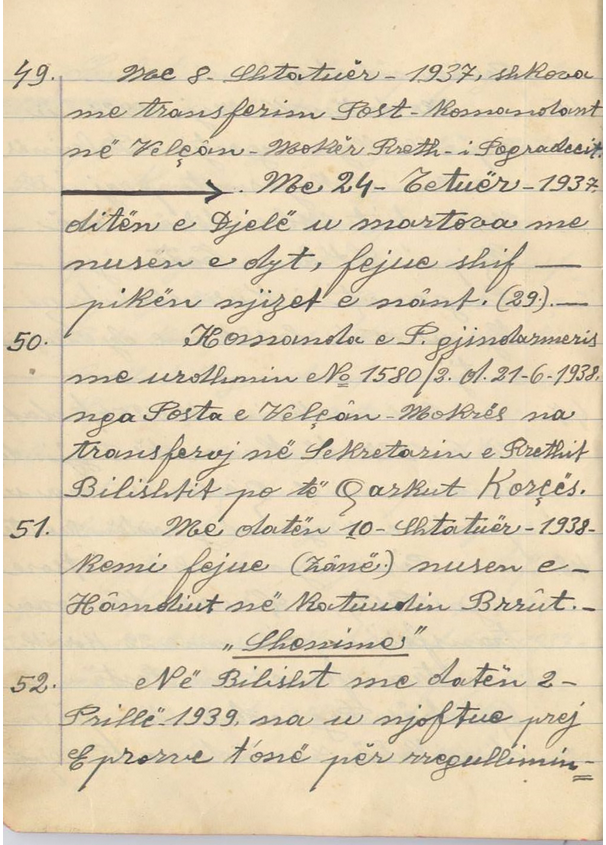 49. Me 8- Shtatuër - 1937, shkova
me transferim Post-Komandant
në Velçân - Mokër Rreth - i Pogradecit.
. Me 24 - Tetuër - 1937
ditën e Djelë u martova me
nusen e dyt, fejue shif —
pikën njizet e nânt. (29.). —
50. Komanda e P. gjindarmeris
me urdhnin № 1580/2. d. 21-6-1938.
nga Posta e Velçân - Mokrës na
transfervj në Sekretarin e Rrethit
Bilishtit po të Qarkut Korçës.
51. Me datën 10- Shtatuër - 1938-
Kemi fejue (zânë.) nusen e -
Hâmdiut në Katuudin Brrût. -
„Shenime”
52. Në Bilisht me datën 2-
Prillë 1939, na u njoftue prej
Eprorve t'onë për rregullimin -